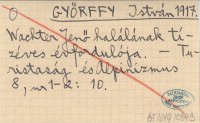 O GYÖRFFY István 1917.
Wachter Jenő halálának tí-
zéves évfordulója. - Tu-
ristaság és Alpinizmus
8, nr 1-2: 10.